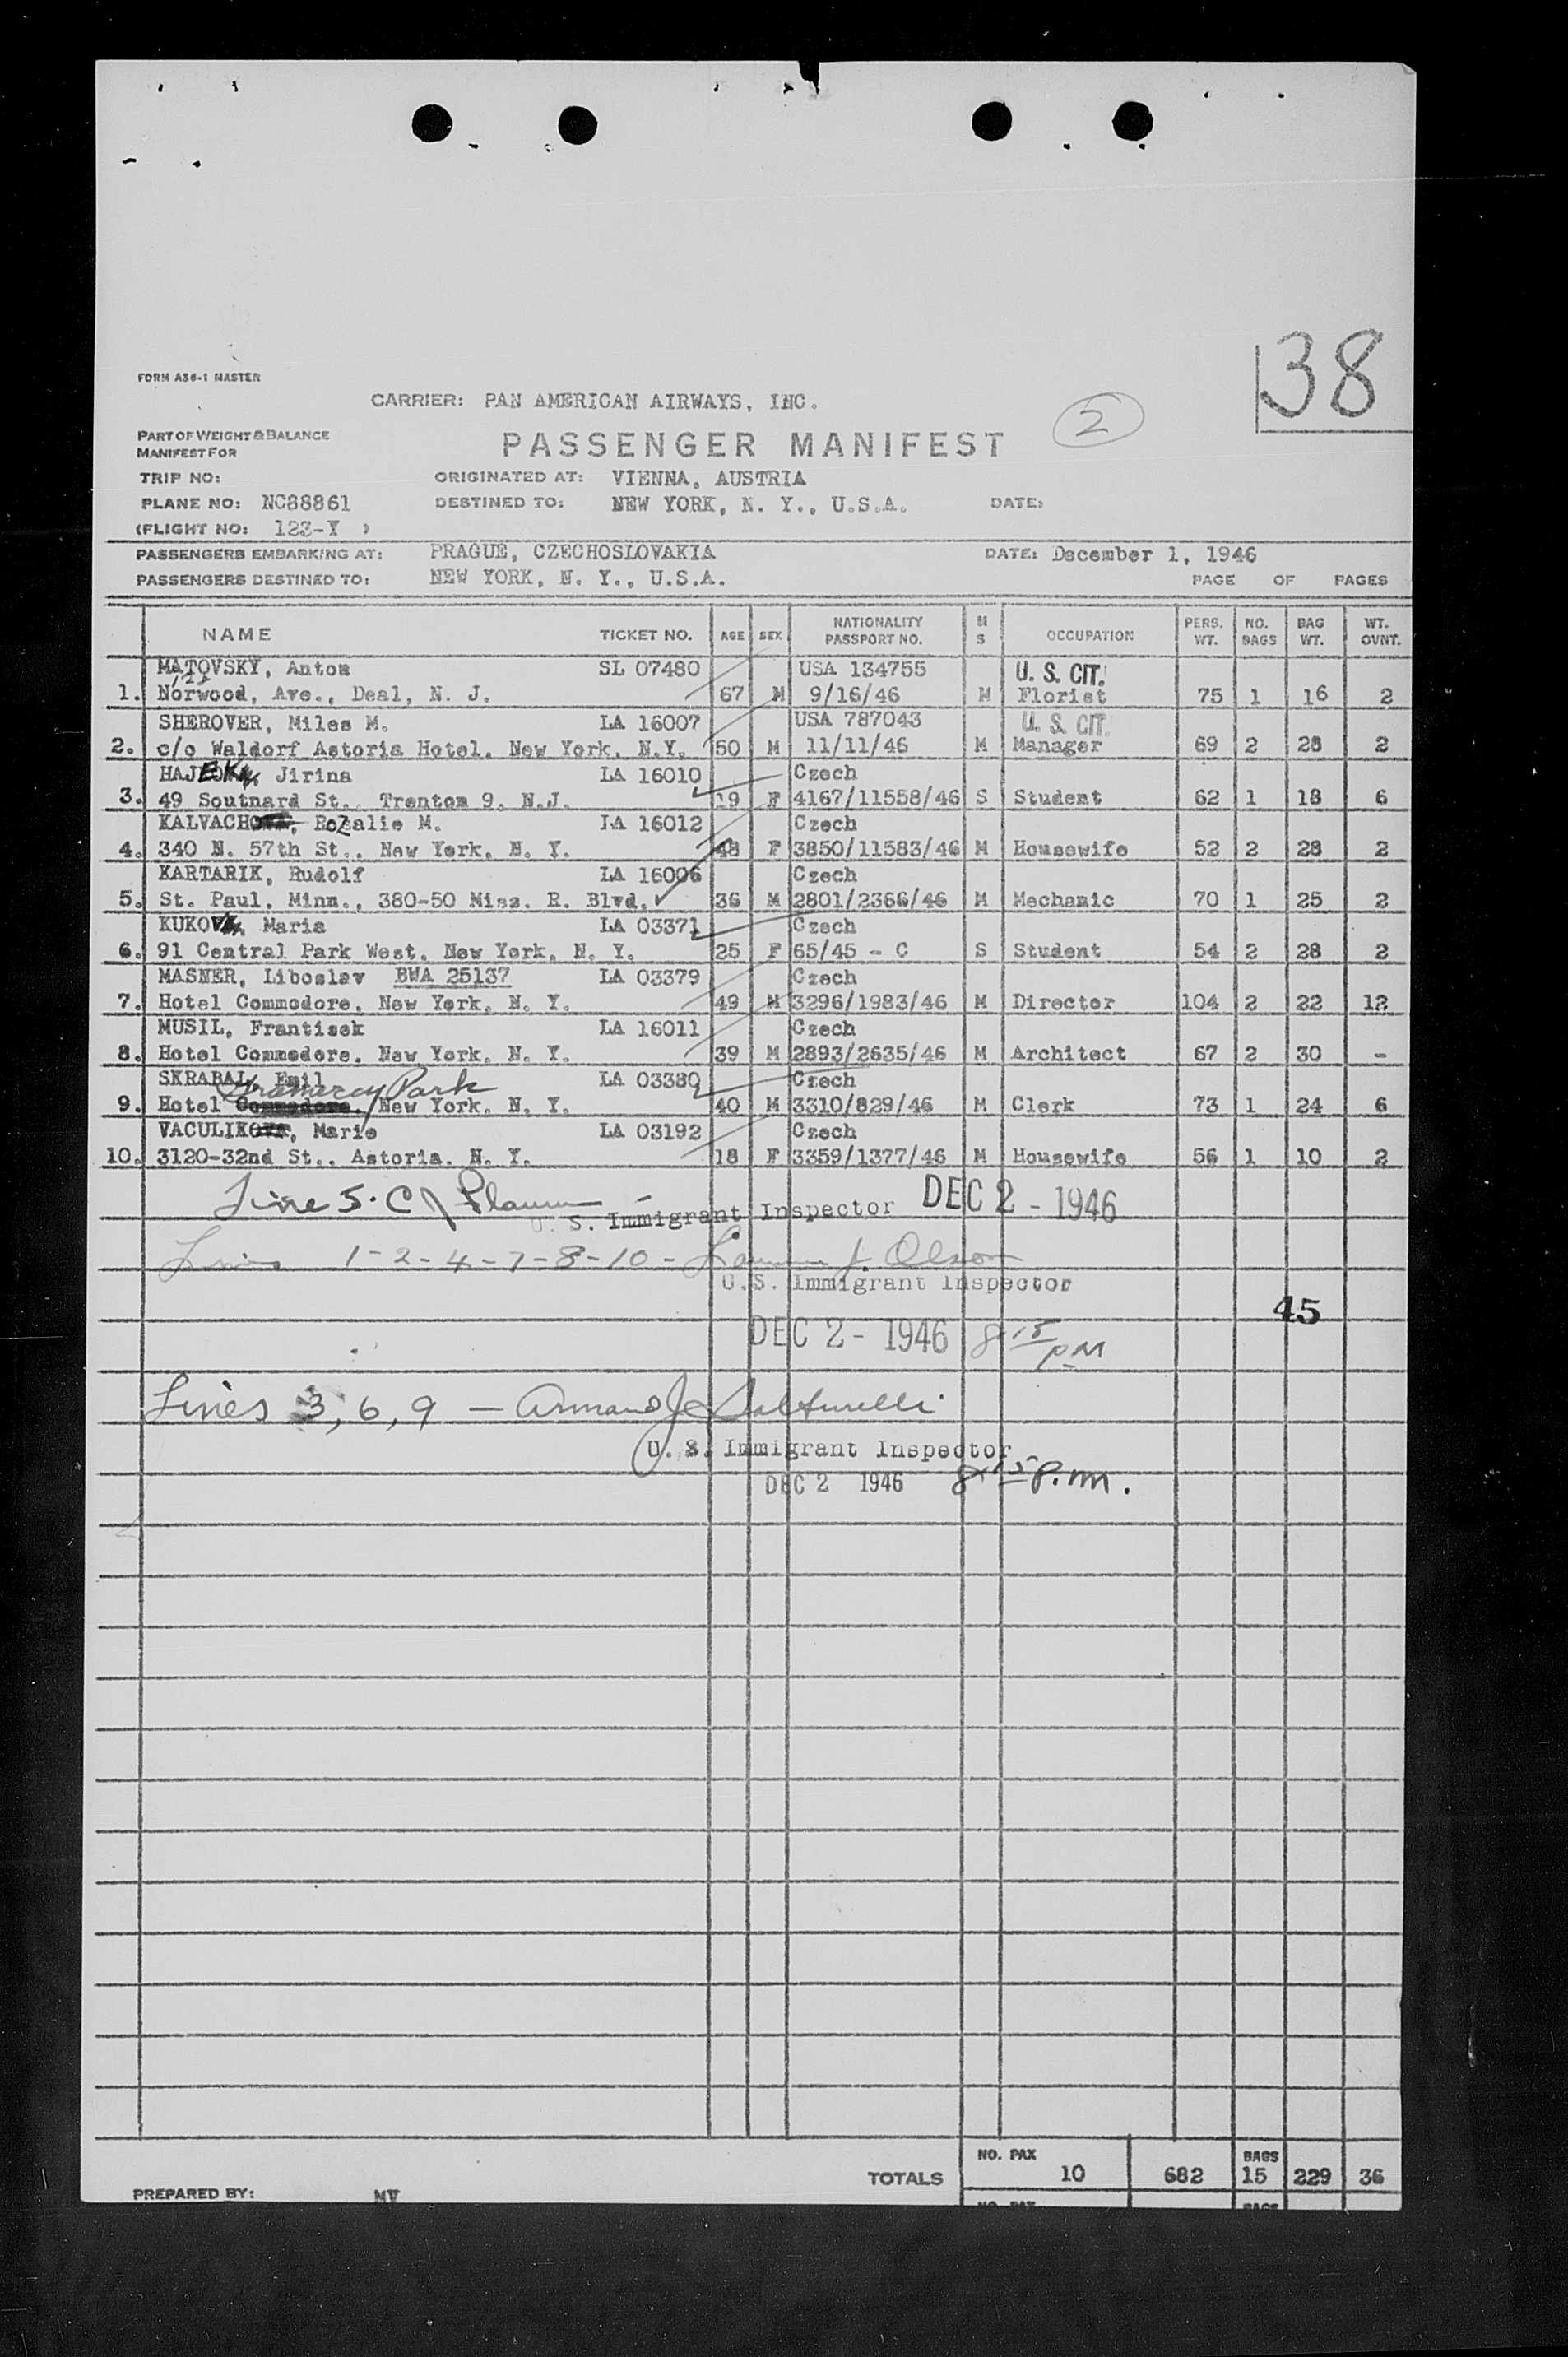 38
FORM A36-1 MASTER
CARRIER: PAN AMERICAN AIRWAYS, INC.
2
PART OF WEIGHT & BALANCE
MANIFEST FOR
PASSENGER MANIFEST
TRIP NO: ORIGINATED AT: VIENNA, AUSTRIA
PLANE NO: NC88861 DESTINED TO: NEW YORK, N. Y., U.S.A. DATE:
(FLIGHT NO: 123-Y )
PASSENGERS EMBARKING AT: PRAGUE, CZECHOSLOVAKIA DATE: December 1, 1946
PASSENGERS DESTINED TO: NEW YORK, N. Y., U.S.A. PAGE OF PAGES
NAME TICKET NO. AGE SEX NATIONALITY PASSPORT NO. M S OCCUPATION PERS. WT. NO. BAGS BAG WT. WT. OVNT.
MATOVSKY, Anton SL 07480 USA 134755 U. S. CIT.
1. Norwood, Ave., Deal, N. J. 67 M 9/16/46 M Florist 75 1 16 2
SHEROVER, Miles M. LA 16007 USA 787043 U. S. CIT.
2. c/o Waldorf Astoria Hotel. New York. N.Y. 50 M 11/11/46 M Manager 69 2 28 2
HAJEK, Jirina LA 16010 Czech
3. 49 Soutnard St. Trenton 9. N.J. 19 F 4167/11558/46 S Student 62 1 18 6
KALVACH, Rozalie M. LA 16012 Czech
4. 340 N. 57th St., New York. N. Y. 48 F 3850/11583/46 M Housewife 52 2 28 2
KARTARIK, Rudolf LA 16006 Czech
5. St. Paul. Minn., 380-50 Miss. R. Blvd. 36 M 2801/2366/46 M Mechanic 70 1 25 2
KUKO, Maria LA 03371 Czech
6. 91 Central Park West. New York. N. Y. 25 F 65/45 - C S Student 54 2 28 2
MASNER, Liboslav BWA 25137 LA 03379 Czech
7. Hotel Commodore. New York. N. Y. 49 M 3296/1983/46 M Director 104 2 22 12
MUSIL, Frantisek LA 16011 Czech
8. Hotel Commodore. New York. N. Y. 39 M 2893/2635/46 M Architect 67 2 30 -
SKRABAL, Emil LA 03380 Czech
Gramercy Park
9. Hotel Commodore. New York. N. Y. 40 M 3310/829/46 M Clerk 73 1 24 6
VACULIK, Marie LA 03192 Czech
10. 3120-32nd St.. Astoria. N. Y. 18 F 3359/1377/46 M Housewife 56 1 10 2
Line 5. C J
U. S. Immigrant Inspector DEC 2 - 1946
Lines 1-2-4-7-8-10 - J. Olson
U. S. Immigrant Inspector
45
DEC 2 - 1946 8 15 PM
Lines 3, 6, 9 - Armand J. Salturelli
U. S. Immigrant Inspector
DEC 2 1946 8 15 P.m.
TOTALS NO. PAX 10 682 BAGS 15 229 36
PREPARED BY: MV
NO. PAX BAGS